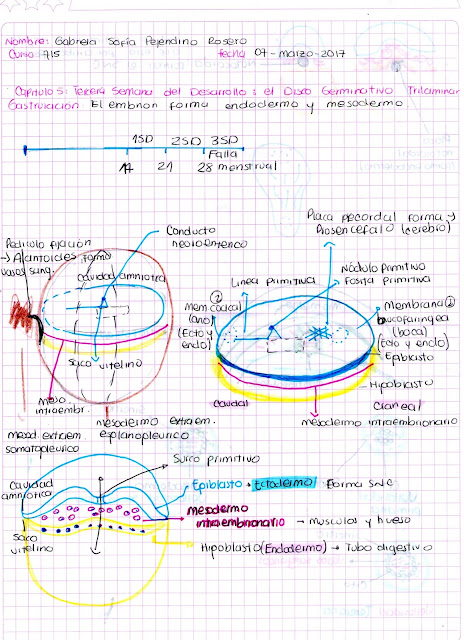 Nombre: Gabriela Sofía Pejendino Rosero
Curso 715 fecha 07-marzo-2017
Capitulo 5: Tercera Semana del Desarrollo: el Disco Germinativo Trilaminar
Gastrulacion El embrion forma endodermo y mesodermo.
1SD 2SD 3SD
Falla
14 21 28 menstrual
Placa precordal forma →
Prosencefalo (cerebro)
Conducto
neuroenterico
Pediculo fijación
→ Alantoides, forma
vasos sang.
Cavidad amniotica
Linea primitiva
Nódulo Primitivo
Fosita primitiva
①
Mem cloacal
(ano)
(Ecto y
Endo)
Membrana ②
bucofaringea
(boca)
(Ecto y endo)
Epiblasto
Saco vitelino
Hipoblasto
Meso
intraembr.
Caudal
Craneal
mesodermo extraem.
esplanopleurico
mesodermo intraembrionario
mesod extraem
somatopleurico
Surco primitivo
Cavidad
amniotica
Epiblasto → Ectodermo Forma SNC
mesodermo
intraembrionario → musculos y hueso
Saco
vitelino
Hipoblasto (Endodermo) → Tubo digestivo